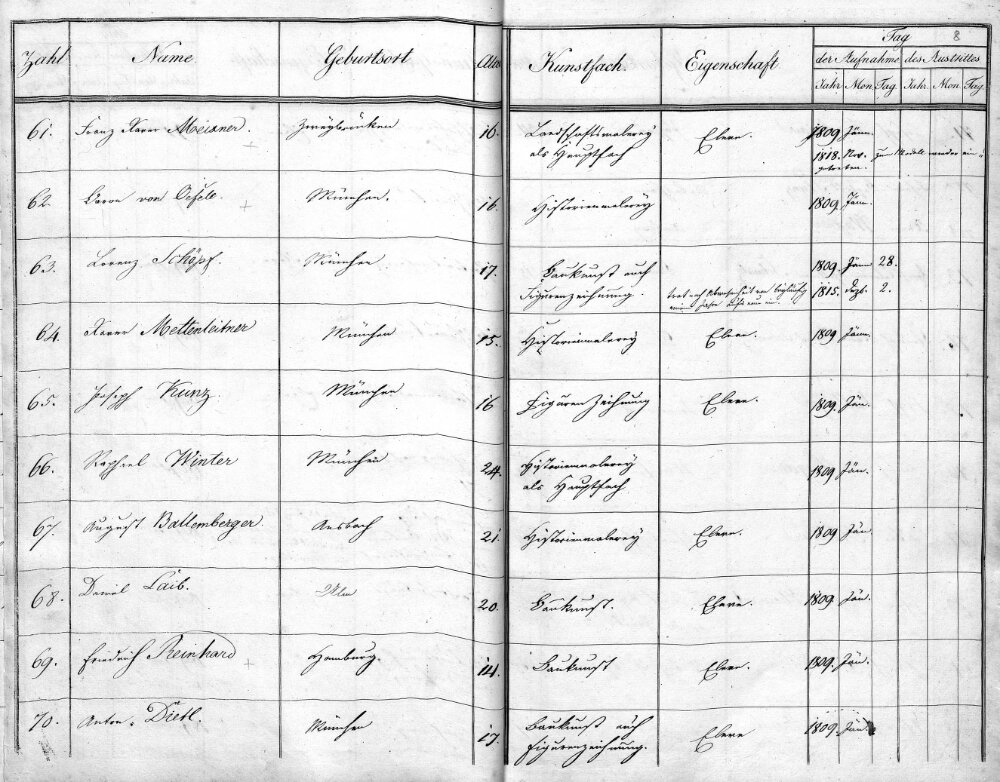 8
Zahl Name. Geburtsort Alter Kunstfach. Eigenschaft Tag
der Aufnahme des Austrittes
Jahr Mon Tag Jahr. Mon. Tag.
61. Franz Xaver Meixner. Zweybrücken 16. Landschaftsmalerey Eleve. 1809. Jänn.
als Hauptfach 1818. Nov. zum wieder ein
getreten.
62. von Oefele. München. 16. Historienmalerey 1809. Jänn.
63. Lorenz Schöpf. München 17. Baukunst auch 1809. Jänn 28.
Figurenzeichnung. trat nach Abwesenheit von 1815. Dezb. 2.
64. Xaver Mettenleitner München 15. Historienmalerey Eleve. 1809 Jänn.
65. Joseph Kunz. München 16 Figuren Zeichnung Eleve. 1809. Jän.
66. Raphael Winter München 24. Historienmalerey 1809 Jän.
als Hauptfach
67. August Ballemberger Ansbach 21. Historienmalerey Eleve. 1809 Jän.
68. Daniel Laib. Ulm 20. Baukunst. Eleve. 1809. Jän.
69. Friedrich Reinhard Hamburg. 14. Baukunst Eleve. 1809. Jän.
70. Anton Dietl. München 17. Baukunst auch Eleve 1809. Jän.
Figurenzeichnung.